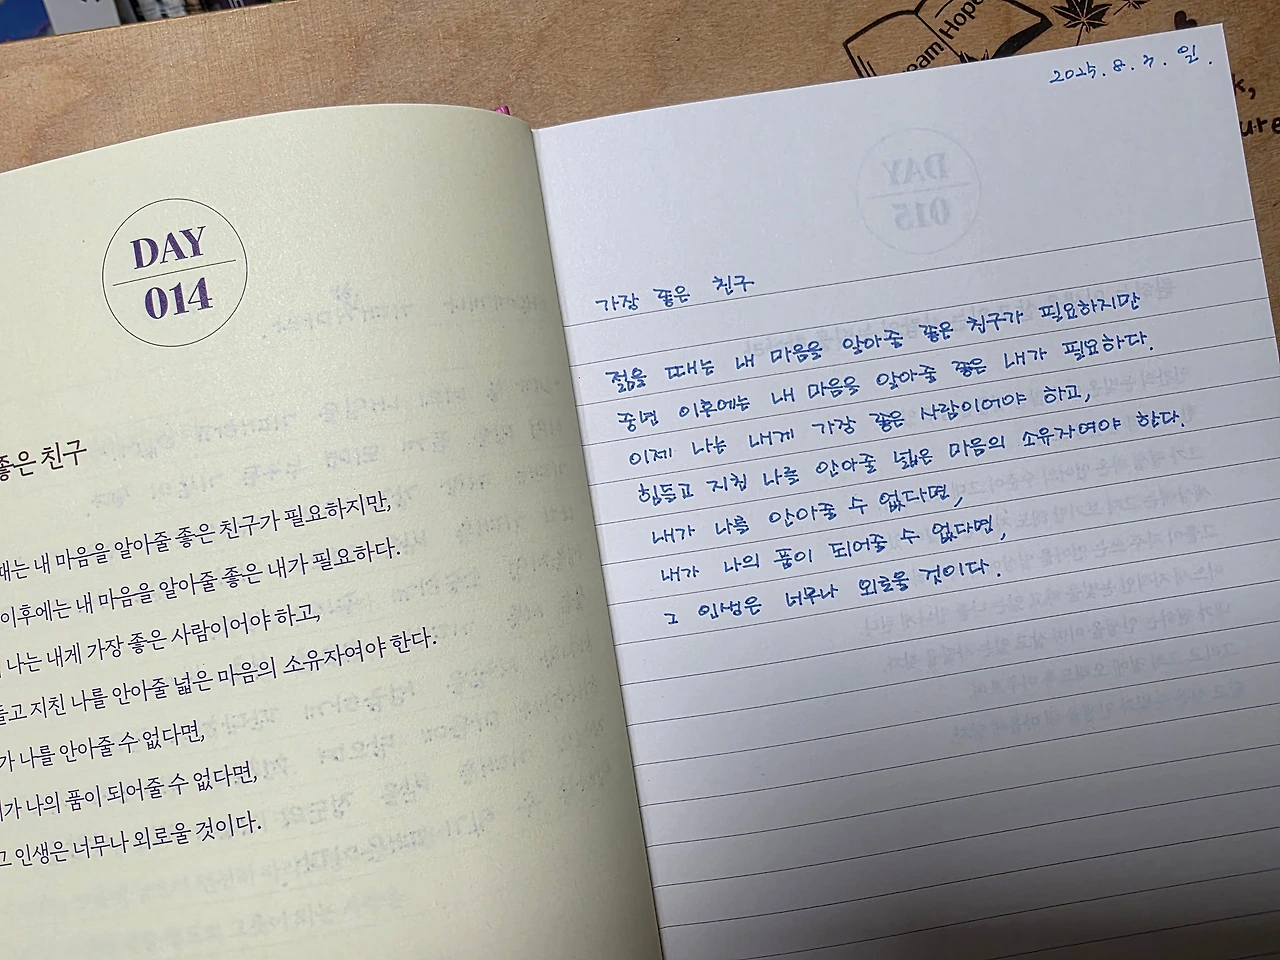 DAY
014
좋은 친구
때는 내 마음을 알아줄 좋은 친구가 필요하지만,
이후에는 내 마음을 알아줄 좋은 내가 필요하다.
나는 내게 가장 좋은 사람이어야 하고,
들고 지친 나를 안아줄 넓은 마음의 소유자여야 한다.
가 나를 안아줄 수 없다면,
가 나의 품이 되어줄 수 없다면,
그 인생은 너무나 외로울 것이다.
2025. 8. 3. 일.
가장 좋은 친구
젊을 때는 내 마음을 알아줄 좋은 친구가 필요하지만
중년 이후에는 내 마음을 알아줄 좋은 내가 필요하다.
이제 나는 내게 가장 좋은 사람이어야 하고,
힘들고 지친 나를 안아줄 넓은 마음의 소유자여야 한다.
내가 나를 안아줄 수 없다면,
내가 나의 품이 되어줄 수 없다면,
그 인생은 너무나 외로울 것이다.
eam Hope